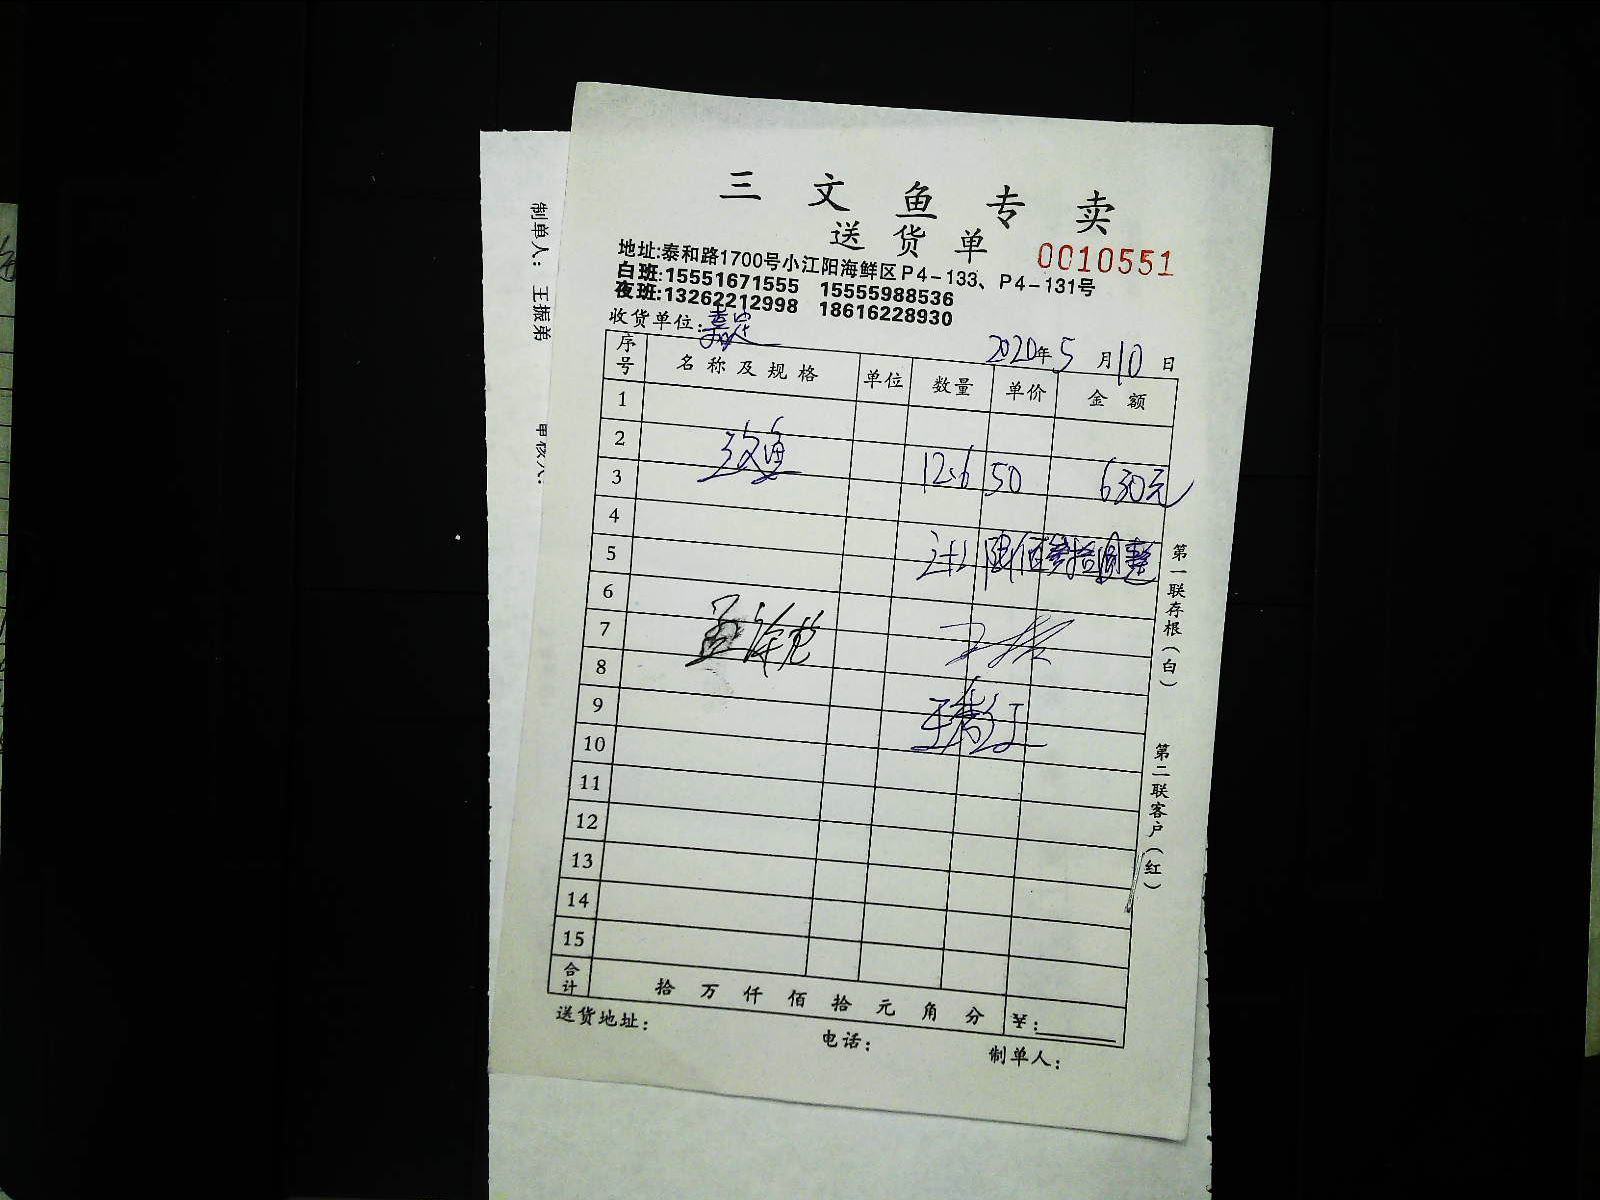 三文鱼专卖
送货单
0010551
地址:泰和路1700号小江阳海鲜区P4-133、P4-131号
白班:15551671555 15555988536
夜班:13262212998 18616228930
收货单位:嘉定
2020年5月10日
序号 名称及规格 单位 数量 单价 金额
1
2
三文鱼 12.6 50 630元
3
4
5
计: 陆佰叁拾圆整
6
7
8
9
10
11
12
13
14
15
合计 拾万仟佰拾元角分 ¥:
送货地址: 电话: 制单人:
第一联存根(白)
第二联客户(红)
制单人: 王振弟